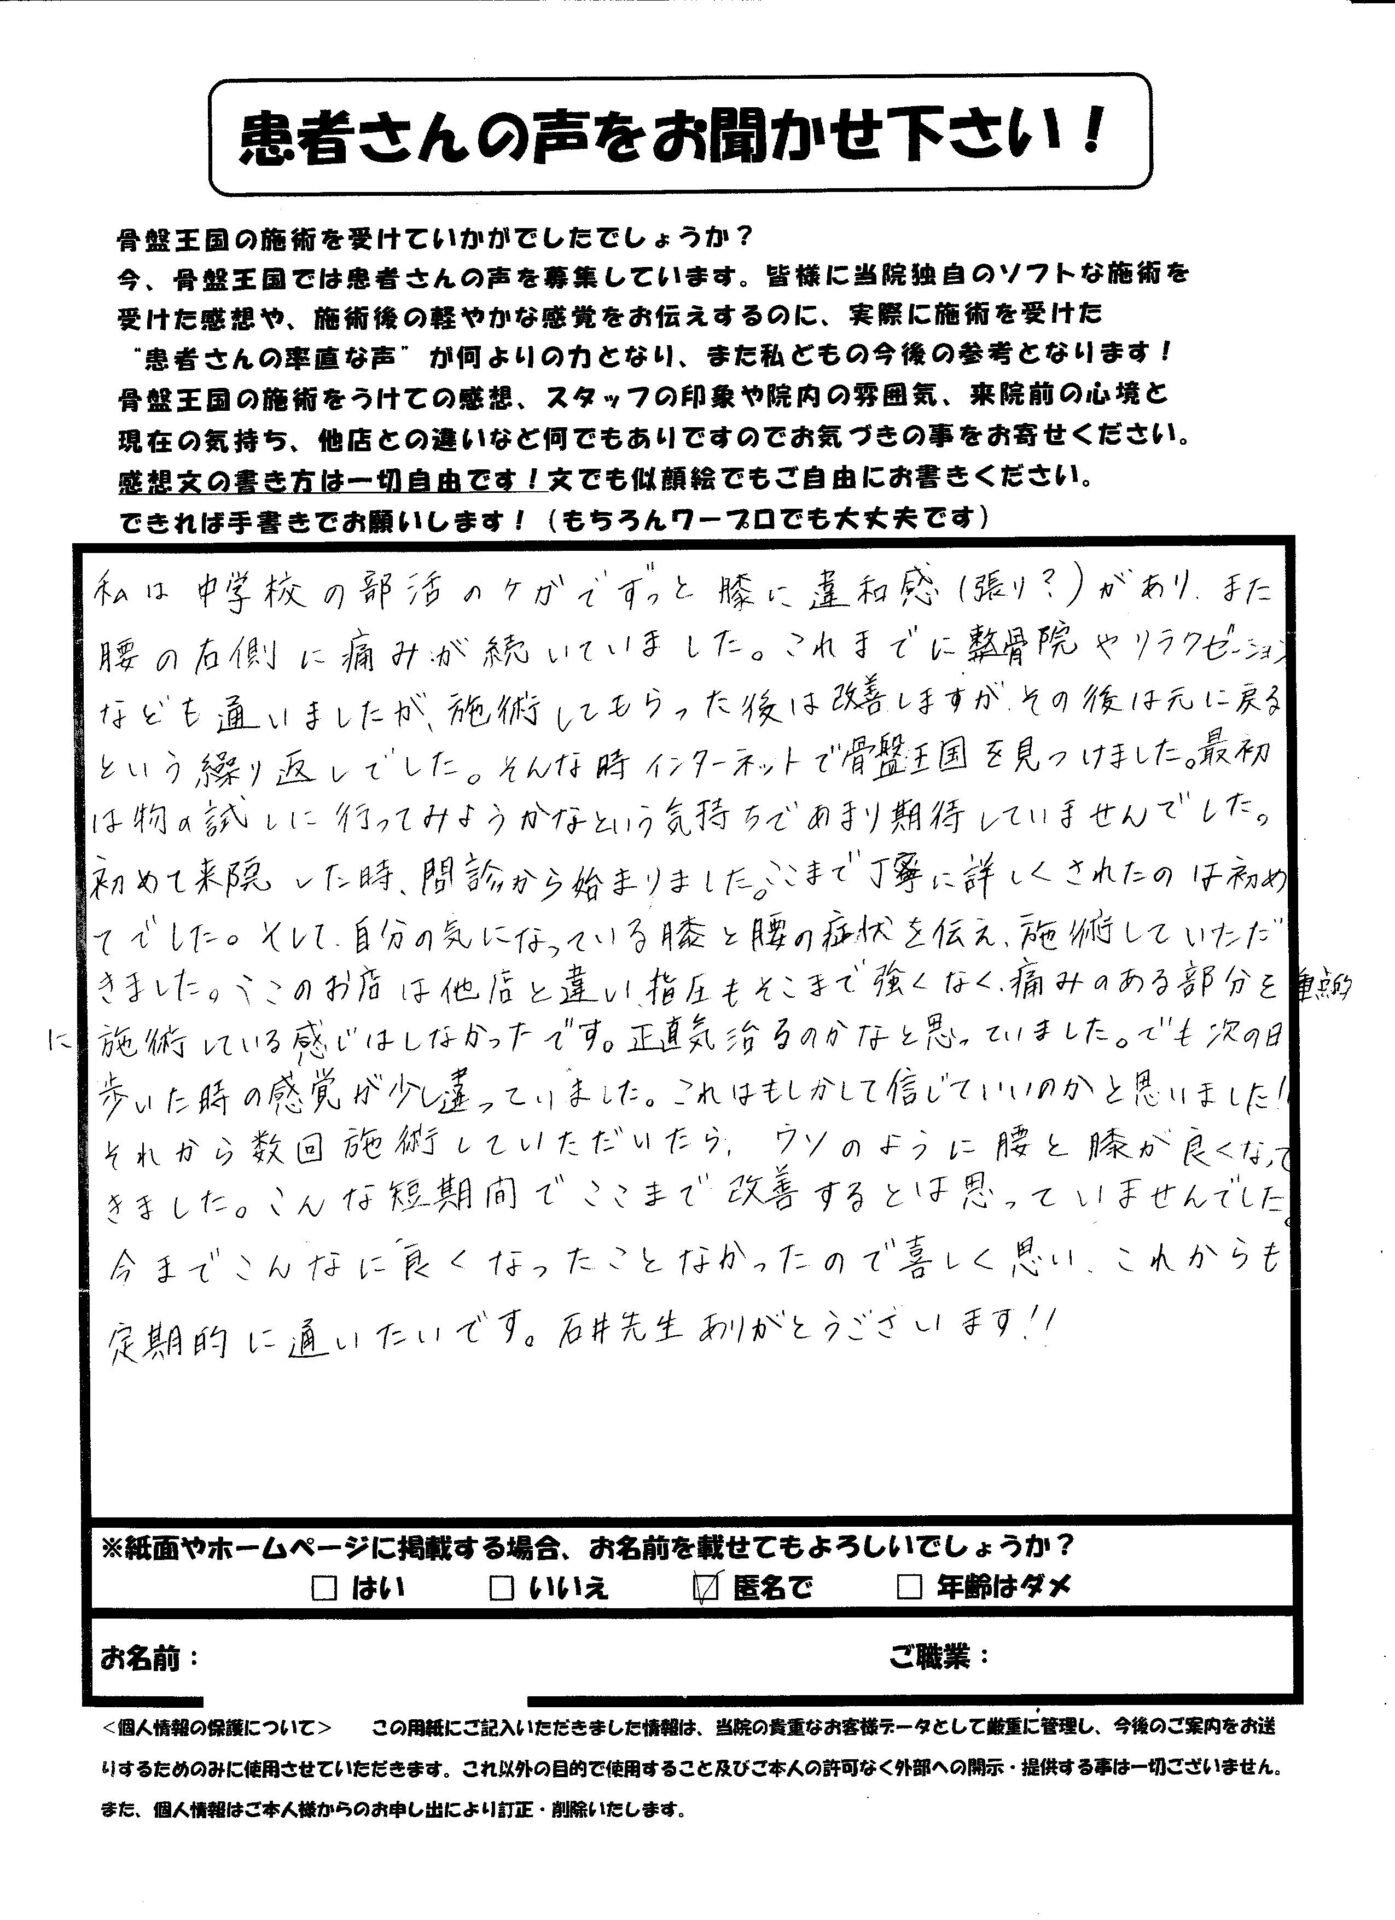 患者さんの声をお聞かせ下さい！
骨盤王国の施術を受けていかがでしたでしょうか？
今、骨盤王国では患者さんの声を募集しています。皆様に当院独自のソフトな施術を
受けた感想や、施術後の軽やかな感覚をお伝えするのに、実際に施術を受けた
“患者さんの率直な声”が何よりの力となり、また私どもの今後の参考となります！
骨盤王国の施術をうけての感想、スタッフの印象や院内の雰囲気、来院前の心境と
現在の気持ち、他店との違いなど何でもありですのでお気づきの事をお寄せください。
感想文の書き方は一切自由です！文でも似顔絵でもご自由にお書きください。
できれば手書きでお願いします！（もちろんワープロでも大丈夫です）
私は中学校の部活のケガでずっと膝に違和感(張り？)があり、また
腰の右側に痛みが続いていました。これまでに整骨院やリラクゼーション
なども通いましたが、施術してもらった後は改善しますが、その後は元に戻る
という繰り返しでした。そんな時インターネットで骨盤王国を見つけました。最初
は物の試しに行ってみようかなという気持ちであまり期待していませんでした。
初めて来院した時、問診から始まりました。ここまで丁寧に詳しくされたのは初め
てでした。そして、自分の気になっている膝と腰の症状を伝え、施術していただ
きました。ここのお店は他店と違い、指圧もそこまで強くなく、痛みのある部分を重点的
に施術している感じはしなかったです。正直気治るのかなと思っていました。でも次の日
歩いた時の感覚が少し違っていました。これはもしかして信じていいのかと思いました！
それから数回施術していただいたら、ウソのように腰と膝が良くなって
きました。こんな短期間でここまで改善するとは思っていませんでした。
今までこんなに良くなったことなかったので喜しく思い、これからも
定期的に通いたいです。石井先生ありがとうございます！！
※紙面やホームページに掲載する場合、お名前を載せてもよろしいでしょうか？
□ はい □ いいえ ☑ 匿名で □ 年齢はダメ
お名前： ご職業：
＜個人情報の保護について＞ この用紙にご記入いただきました情報は、当院の貴重なお客様データとして厳重に管理し、今後のご案内をお送
りするためのみに使用させていただきます。これ以外の目的で使用すること及びご本人の許可なく外部への開示・提供する事は一切ございません。
また、個人情報はご本人様からのお申し出により訂正・削除いたします。